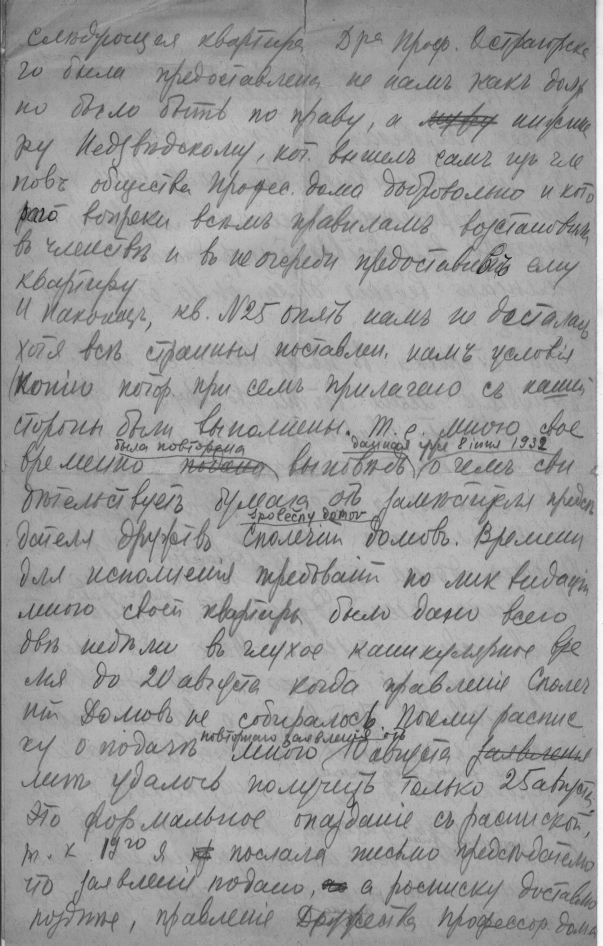 следующая квартира Дра Проф. Острагорска
го была предоставлена не намъ какъ долж
но было быть по праву, а инжене
ру Недзвѣдскому, кот. вышелъ самъ изъ чле
новъ общества Профес. дома добровольно и кото
раго вопреки всѣмъ правиламъ возстановили
въ членствѣ и внѣ очереди предоставили ему
квартиру
И наконецъ, кв. №25 опять намъ не досталась
хотя всѣ странныя поставлен. намъ условія
(копію котор. при семъ прилагаю съ нашей
стороны были выполнены. т. е. мною свое
была повторена данная уже 8 іюня 1932
временно подана выповѣдь, о чемъ сви
дѣтельствуетъ бумага отъ замѣстителя предсѣ
Společny domov
дателя дружствъ Сполечни домовъ. Времени
для исполненія требованій по ликвидаціи
мною своей квартиры было дано всего
двѣ недѣли въ глухое каникулярное вре
мя до 20 августа когда правленіе Сполеч
ни Домовъ не собиралось. Поэтому распис
повторнаго заявленія отъ
ку о подачѣ мною 10 августа заявленія
мнѣ удалось получить только 25 августа
Это формальное опозданіе съ распиской,
т. к. 19го я послала письмо предсѣдателю
что заявленіе подано, а росписку доставлю
позднѣе, правленіе Дружества профессор. дома